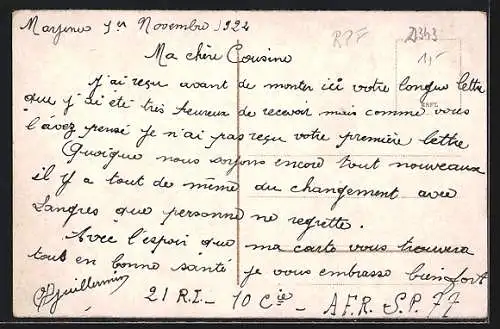 Mayence 1er Novembre 1924
RPF
21343
1,-
Ma chère Cousine
J'ai reçu avant de monter ici votre longue lettre
que j'ai été très heureux de recevoir mais comme vous
l'avez pensé je n'ai pas reçu votre première lettre
Quoique nous soyons encore tout nouveaux
il y a tout de même du changement avec
Langres que personne ne regrette.
Avec l'espoir que ma carte vous trouvera
tout en bonne santé je vous embrasse bien fort
Guillermin
21 R.I._ 10 Cie _ A.F.R. S.P. 77